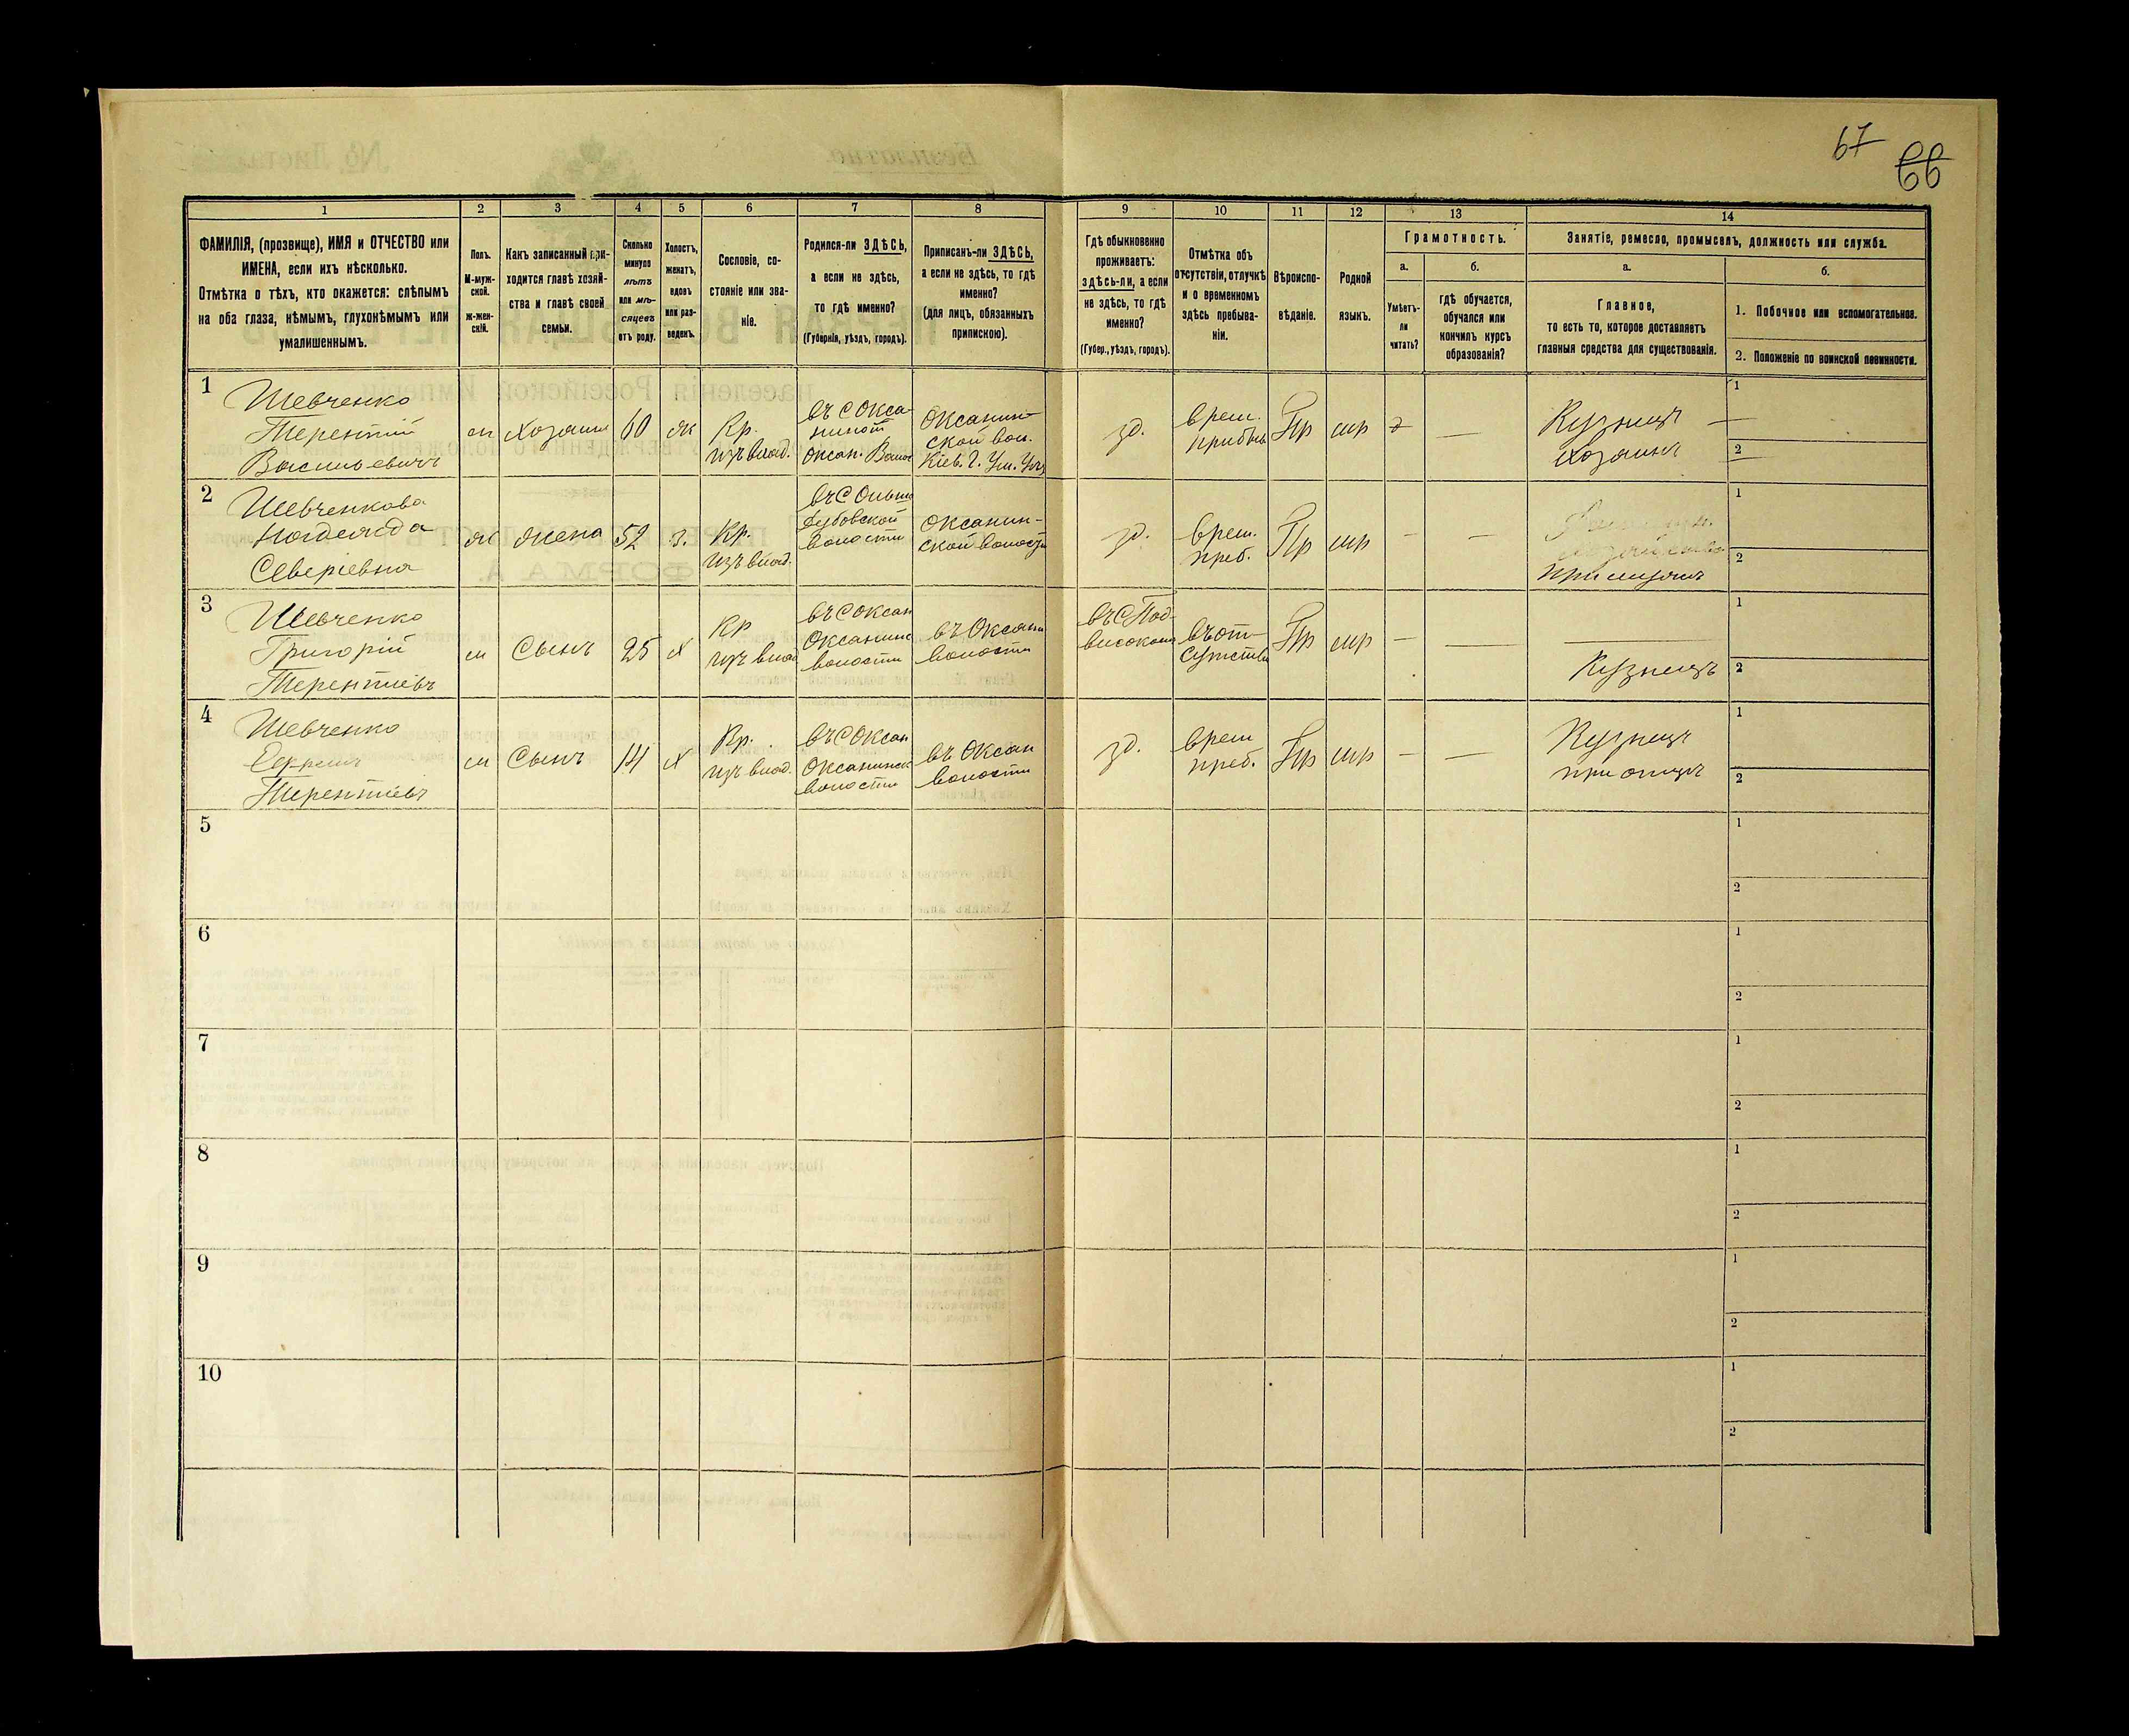 67 66
1 2 3 4 5 6 7 8 9 10 11 12 13 14
ФАМИЛІЯ, (прозвище), ИМЯ и ОТЧЕСТВО или
ИМЕНА, если ихъ нѣсколько.
Отмѣтка о тѣхъ, кто окажется: слѣпымъ
на оба глаза, нѣмымъ, глухонѣмымъ или
умалишеннымъ.
Полъ.
М-муж-
ской.
ж-жен-
скій.
Какъ записанный при-
ходится главѣ хозяй-
ства и главѣ своей
семьи.
Сколько
минуло
лѣтъ
или мѣ-
сяцевъ
отъ роду.
Холостъ,
женатъ,
вдовъ
или раз-
веденъ.
Сословіе, со-
стояніе или зва-
ніе.
Родился-ли ЗДѢСЬ,
а если не здѣсь,
то гдѣ именно?
(Губернія, уѣздъ, городъ).
Приписанъ-ли ЗДѢСЬ,
а если не здѣсь, то гдѣ
именно?
(для лицъ, обязанныхъ
припискою).
Гдѣ обыкновенно
проживаетъ:
здѣсь-ли, а если
не здѣсь, то гдѣ
именно?
(Губер., уѣздъ, городъ).
Отмѣтка объ
отсутствіи, отлучкѣ
и о временномъ
здѣсь пребыва-
ніи.
Вѣроиспо-
вѣданіе.
Родной
языкъ.
Грамотность.
а.
Умѣетъ-
ли
читать?
б.
гдѣ обучается,
обучался или
кончилъ курсъ
образованія?
Занятіе, ремесло, промыселъ, должность или служба.
а.
Главное,
то есть то, которое доставляетъ
главныя средства для существованія.
б.
1. Побочное или вспомогательное.
2. Положеніе по воинской повинности.
1
Шевченко
Терентій
Васильевичъ
м
хозяинъ
60
ж
Кр.
изъ влад.
въ С Окса-
Оксан.
Оксанин-
ской вол.
Кіев. г. Ум.
зд.
врем.
Пр
мр
—
Кузнецъ
хозяинъ
1
—
2
2
Шевченкова
Надежда
ж
жена
52
з.
Кр.
изъ влад.
волости
Оксанин-
ской волости
зд.
врем.
преб.
Пр
мр
—
—
при мужѣ
1
2
3
Шевченко
Григорій
Терентіевъ
м
Сынъ
25
х
Кр
изъ влад
въ С Оксан
волости
въ Оксан
волости
въ С Под-
высоком
въ от-
Пр
мр
—
—
Кузнецъ
1
2
4
Шевченко
Терентіевъ
м
Сынъ
14
х
Кр.
изъ влад.
въ С Оксан
Оксанинск
волости
въ Оксан
волости
зд.
врем
преб.
Пр
мр
—
—
Кузнецъ
при отцѣ
1
2
5
1
2
6
1
2
7
1
2
8
1
2
9
1
2
10
1
2